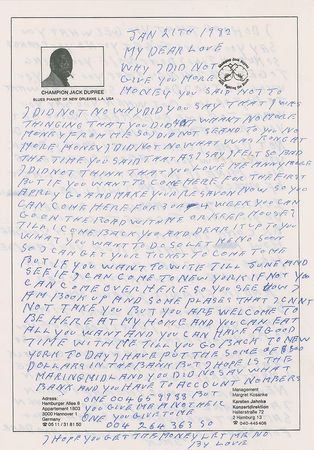 JAN 21TH 1982
MY DEAR LOVE
WHY I DID NOT
GIVE YOU MORE
MONEY YOU SAID NOT TO
CHAMPION JACK DUPREE
BLUES PIANIST OF NEW ORLEANS L.A. USA
I DID NOT NO WHY DID YOU SAY THAT I WAS
THINGING THAT YOU DID NOT WANT NO MORE
MONEY FROM ME SO I DID NOT SEAND TO YOU NO
MORE MONEY I DID NOT NO WHAT WAS RONG AT
THE TIME YOU SAID THAT AS I SAY I FELT SO BAD
I DID NOT THINK THAT YOU LOVE ME ANNY MORE
BUT IF YOU WANT TO COME HERE FOR THE FIRST
APRLY GO AND MAKE YOUR LESAVON NOW SO YOU
CAN COME HERE FOR 3 OR 4 WEEK YOU CAN
GO ON THE ROAD WITH ME OR KEEP HOUSE
TILL I COME BACK YOU AND DEAR IT UP TO YOU
WHAT YOU WANT TO DO SO LET ME NO SOON
SO I CAN GET YOUR TICKET TO COME TO ME
BUT IF YOU WANT TO WITE TILL JUNE AND
SEE IF I CAN COME TO NEW YORK IF NOT YOU
CAN COME OVER HERE SO YOU SEE NOW I
AM BOOK UP AND SOME PLASES THAT I CNNT
NOT TAKE YOU BUT YOU ARE WELCOME TO
BE HERE AT MY HOME AND YOU CAN EAT
ALL YOU WANT AND YOU CAN HAVE A GOOD
TIME WITH ME TILL YOU GO BACK TO NEW
YORK TO DAY I HAVE PUT THE SOME OF $500
DOLLARS IN THE BANK BUT I HOPE IS THE
MARING MIDLAND YOU DID NO SAY WHAT
BANK AND YOU HAVE TO ACCOUNT NOMBERS
ONE 00465 9798 BUT
YOU GIVE ME ANOTHER
ONE YOU GIVE TO ME
004 264 363 50
Adress:
Hemburger Allee 8
Appartement 1803
3000 Hannover 1
Germany
☎ 05 11 / 31 81 50
Management
Margret Kosanke
Karsten Jahnke
Konzertdirektion
Hallerstraße 72
2 Hamburg 13
☎ 040-445408
I HOPE YOU GET THE MONEY LET ME NO
BY LOVE